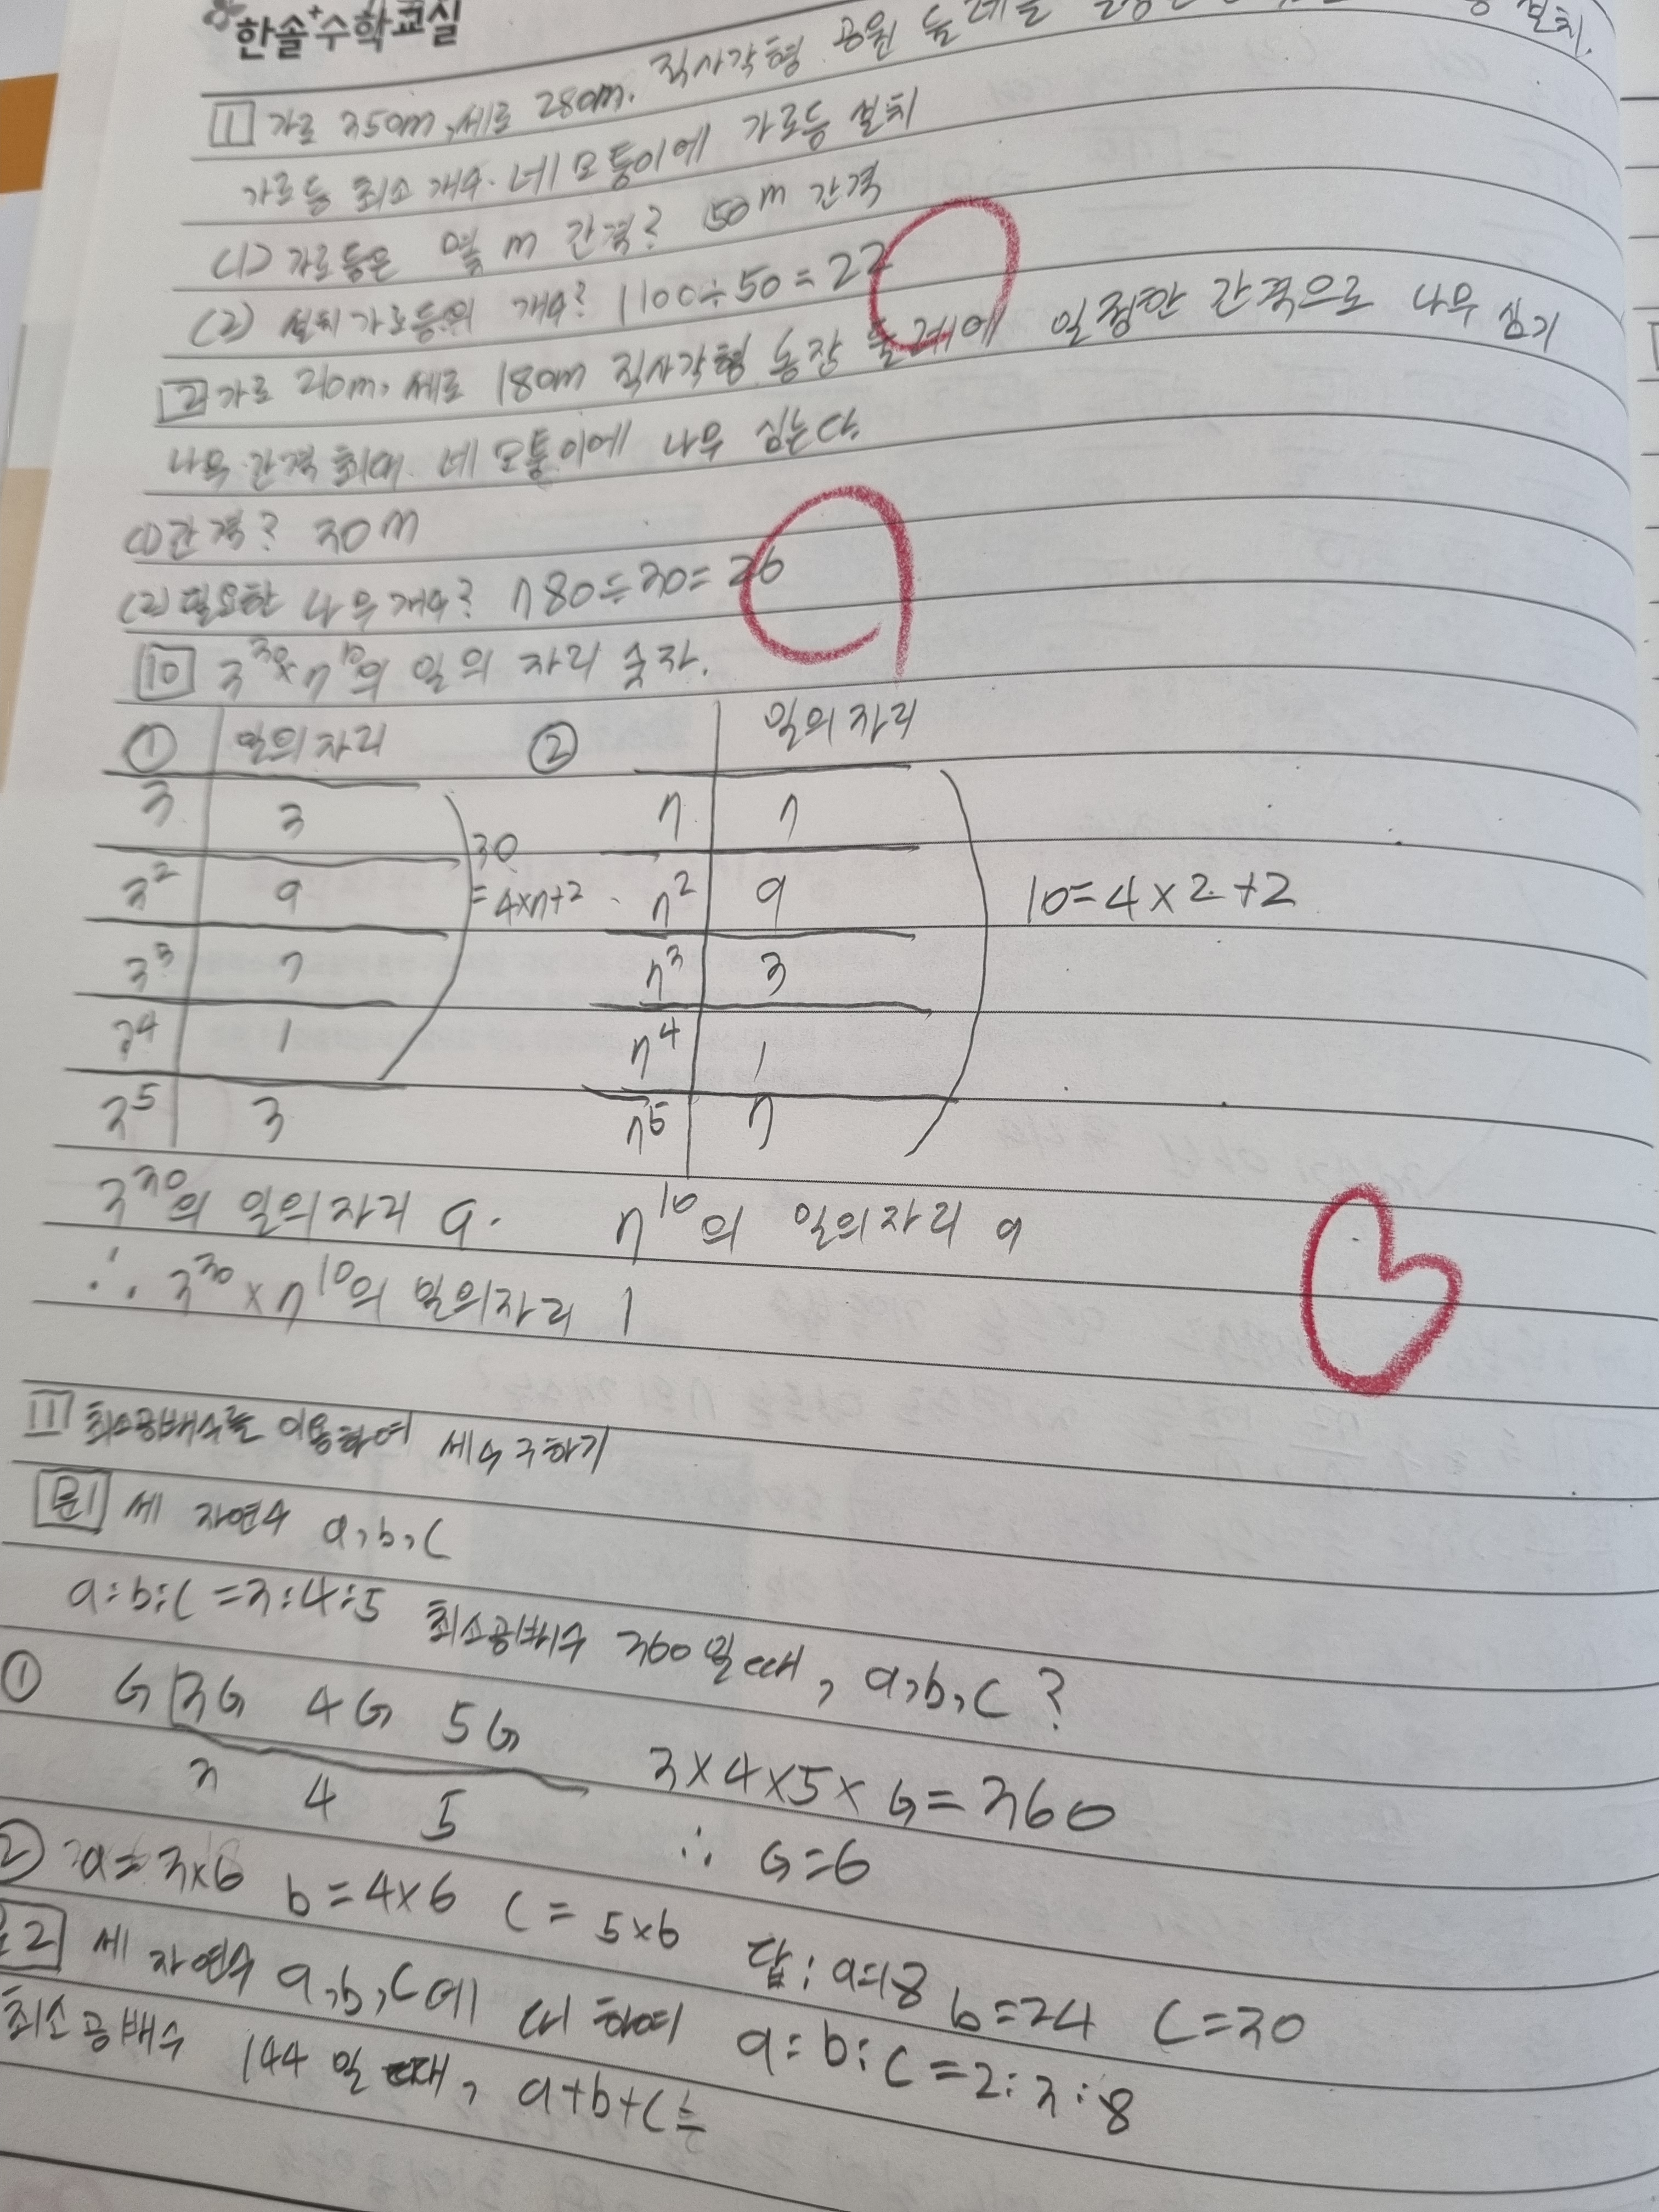 한솔+수학교실
1 가로 350m, 세로 280m. 직사각형 공원 둘레를 설치.
가로등 최소 개수. 네 모퉁이에 가로등 설치
(1) 가로등은 몇 m 간격? 50m 간격
(2) 설치 가로등의 개수? 1100÷50=22
2 가로 210m, 세로 180m 직사각형 농장 둘레에 일정한 간격으로 나무 심기
나무 간격 최대. 네 모퉁이에 나무 심는다.
(1) 간격? 30m
(2) 필요한 나무 개수? 780÷30=26
10 3^30×7^10의 일의 자리 숫자.
① 일의 자리 ② 일의 자리
3 3 7 7
3^2 9 30=4×7+2 7^2 9 10=4×2+2
3^3 7 7^3 3
3^4 1 7^4 1
3^5 3 7^5 7
3^30의 일의자리 9. 7^10의 일의자리 9
∴ 3^30×7^10의 일의자리 1
11 최소공배수를 이용하여 세수 구하기
문1 세 자연수 a,b,c
a:b:c=3:4:5 최소공배수 360일때, a,b,c?
① G 3G 4G 5G
3 4 5 3×4×5×G=360
∴ G=6
② a=3×6 b=4×6 c=5×6 답: a=18 b=24 c=30
문2 세 자연수 a,b,c에 대하여 a:b:c=2:3:8
최소공배수 144일 때, a+b+c는